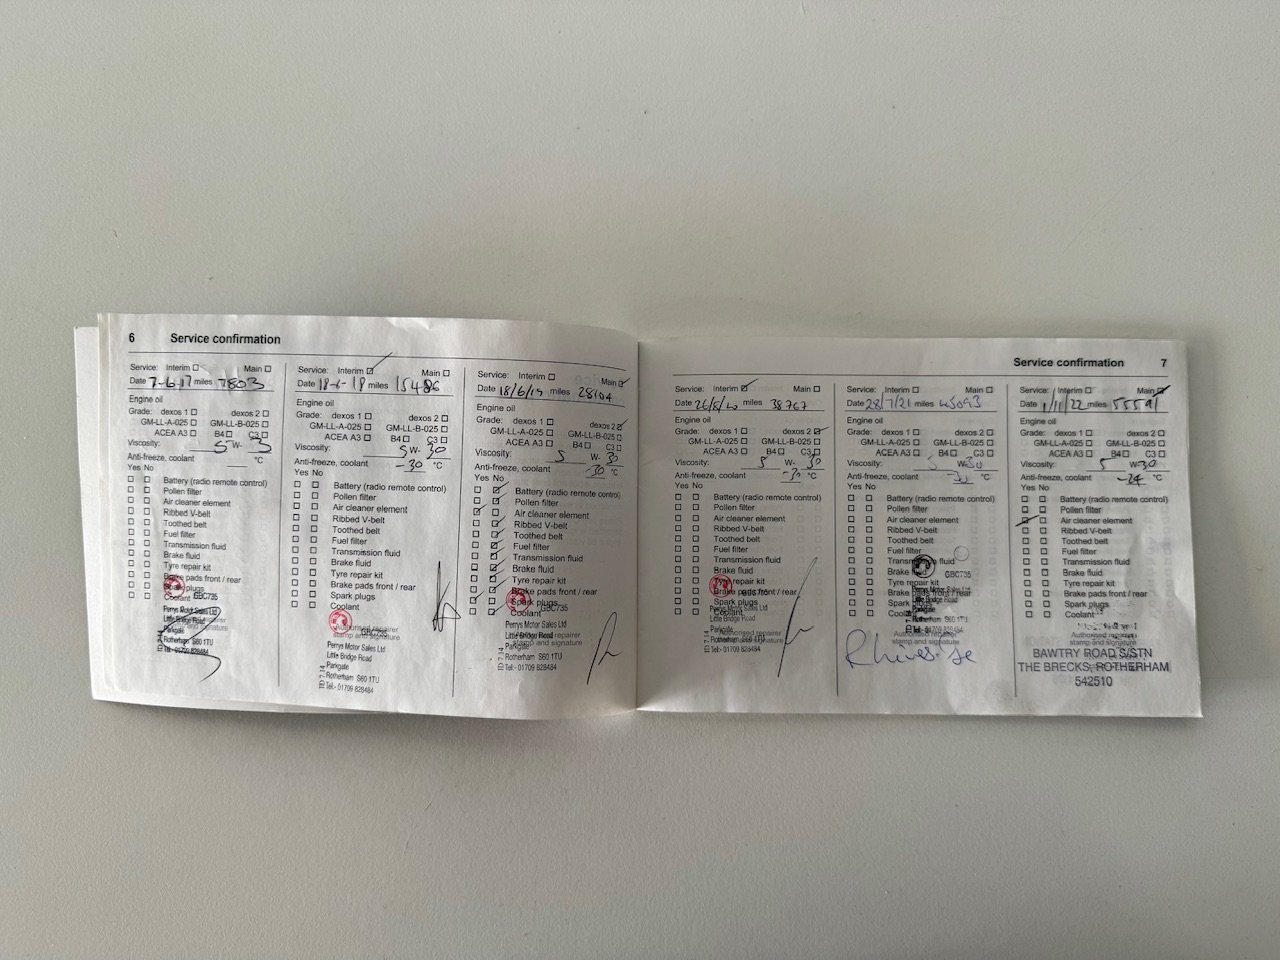 6 Service confirmation
Service: Interim Main
Date 7-6-17 miles 7803
Engine oil
Grade: dexos 1 dexos 2
GM-LL-A-025 GM-LL-B-025
ACEA A3 B4 C3
Viscosity: 5 W- 3
Anti-freeze, coolant °C
Yes No
Battery (radio remote control)
Pollen filter
Air cleaner element
Ribbed V-belt
Toothed belt
Fuel filter
Transmission fluid
Brake fluid
Tyre repair kit
Brake pads front / rear
Spark plugs
Coolant GBC735
Perrys Motor Sales Ltd
Little Bridge Road
Parkgate
Rotherham S60 1TU
Tel:- 01709 828484
Service: Interim Main
Date 18-6-18 miles 15486
Engine oil
Grade: dexos 1 dexos 2
GM-LL-A-025 GM-LL-B-025
ACEA A3 B4 C3
Viscosity: 5 W- 30
Anti-freeze, coolant -30 °C
Yes No
Battery (radio remote control)
Pollen filter
Air cleaner element
Ribbed V-belt
Toothed belt
Fuel filter
Transmission fluid
Brake fluid
Tyre repair kit
Brake pads front / rear
Spark plugs
Coolant
Authorised repairer
stamp and signature
GBC735
Perrys Motor Sales Ltd
Little Bridge Road
Parkgate
Rotherham S60 1TU
Tel:- 01709 828484
Service: Interim Main
Date 18/6/19 miles 28104
Engine oil
Grade: dexos 1 dexos 2
GM-LL-A-025 GM-LL-B-025
ACEA A3 B4 C3
Viscosity: 5 W- 30
Anti-freeze, coolant -30 °C
Yes No
Battery (radio remote control)
Pollen filter
Air cleaner element
Ribbed V-belt
Toothed belt
Fuel filter
Transmission fluid
Brake fluid
Tyre repair kit
Brake pads front / rear
Spark plugs
Coolant
GBC735
Perrys Motor Sales Ltd
Little Bridge Road
stamp and signature
Parkgate
Rotherham S60 1TU
Tel:- 01709 828484
Service confirmation 7
Service: Interim Main
Date 26/8/20 miles 38767
Engine oil
Grade: dexos 1 dexos 2
GM-LL-A-025 GM-LL-B-025
ACEA A3 B4 C3
Viscosity: 5 W- 30
Anti-freeze, coolant -30 °C
Yes No
Battery (radio remote control)
Pollen filter
Air cleaner element
Ribbed V-belt
Toothed belt
Fuel filter
Transmission fluid
Brake fluid
Tyre repair kit
Brake pads front / rear
Spark plugs
Coolant
Perrys Motor Sales Ltd
Authorised repairer
stamp and signature
Rotherham S60 1TU
Tel:- 01709 828484
Service: Interim Main
Date 28/7/21 miles 45093
Engine oil
Grade: dexos 1 dexos 2
GM-LL-A-025 GM-LL-B-025
ACEA A3 B4 C3
Viscosity: 5 W- 30
Anti-freeze, coolant °C
Yes No
Battery (radio remote control)
Pollen filter
Air cleaner element
Ribbed V-belt
Toothed belt
Fuel filter
Transmission fluid
Brake fluid
GBC735
Tyre repair kit
Brake pads front / rear
Spark plugs
Coolant
Authorised repairer
stamp and signature
Service: Interim Main
Date 1/11/22 miles 55591
Engine oil
Grade: dexos 1 dexos 2
GM-LL-A-025 GM-LL-B-025
ACEA A3 B4 C3
Viscosity: 5 W- 30
Anti-freeze, coolant -24 °C
Yes No
Battery (radio remote control)
Pollen filter
Air cleaner element
Ribbed V-belt
Toothed belt
Fuel filter
Transmission fluid
Brake fluid
Tyre repair kit
Brake pads front / rear
Spark plugs
Coolant
Authorised repairer
stamp and signature
BAWTRY ROAD S/STN
THE BRECKS, ROTHERHAM
542510